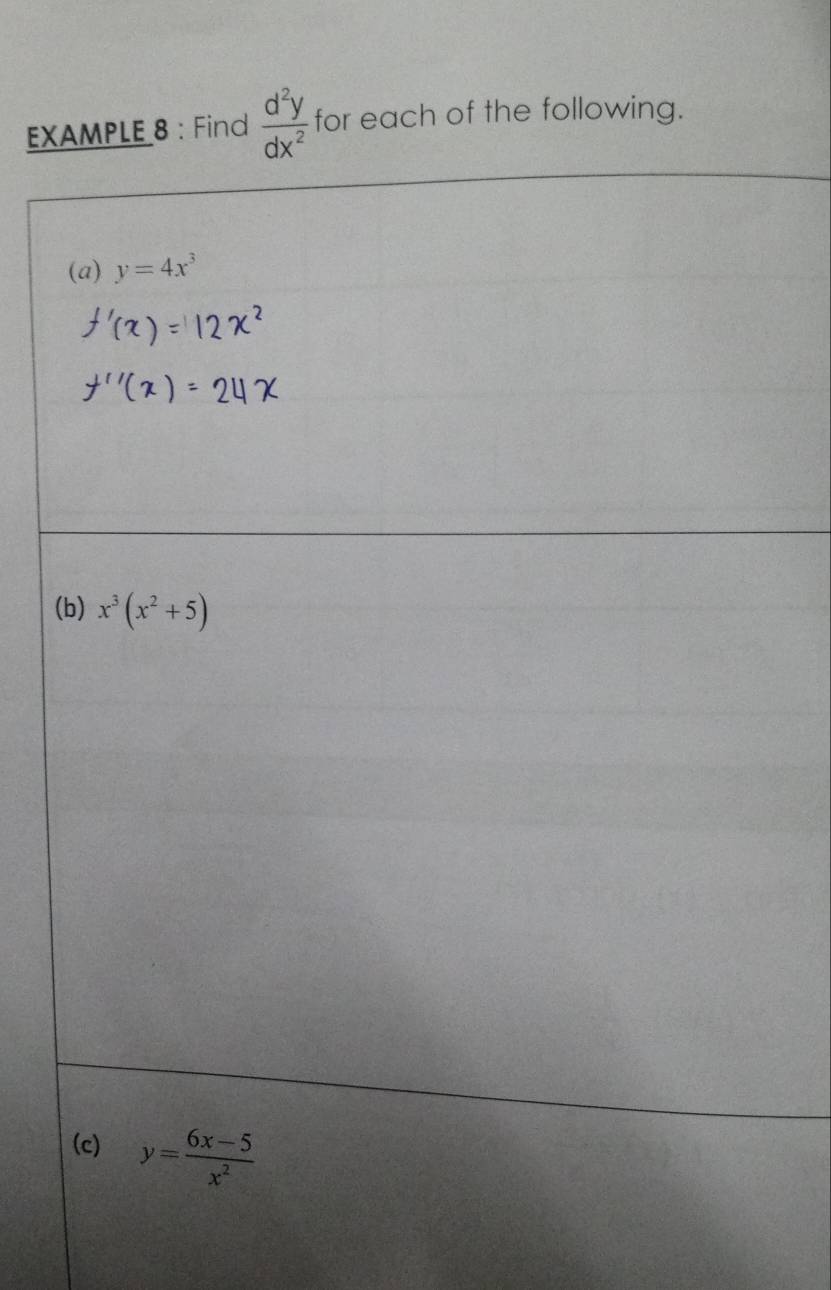 EXAMPLE 8 : Find d²y/dx² for each of the following.
(a) y = 4x³
f'(x) = 12x²
f''(x) = 24x
(b) x³(x² + 5)
(c) y = (6x − 5)/x²